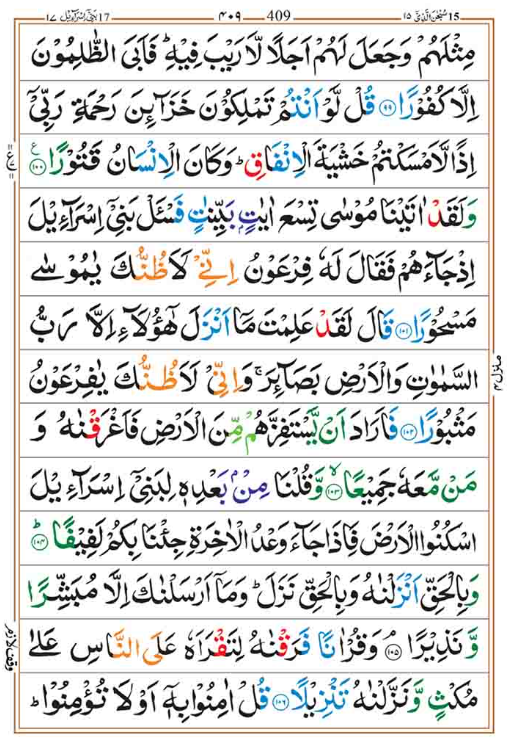 سُبْحٰنَ الَّذِیْۤ ۱۵ 15 ۴۰۹ 409 بَنِیْۤ اِسْرَآءِیْل ۱۷ 17
مِثْلَهُمْ وَجَعَلَ لَهُمْ اَجَلًا لَّا رَیْبَ فِیْهِؕ فَاَبَى الظّٰلِمُوْنَ
اِلَّا كُفُوْرًا ۝۹۹ قُلْ لَّوْ اَنْتُمْ تَمْلِكُوْنَ خَزَآىِٕنَ رَحْمَةِ رَبِّیْۤ
اِذًا لَّاَمْسَكْتُمْ خَشْیَةَ الْاِنْفَاقِؕ وَكَانَ الْاِنْسَانُ قَتُوْرًا ۝۱۰۰ع
وَلَقَدْ اٰتَیْنَا مُوْسٰى تِسْعَ اٰیٰتٍۭ بَیِّنٰتٍ فَسْـَٔلْ بَنِیْۤ اِسْرَآءِیْلَ
اِذْ جَآءَهُمْ فَقَالَ لَهٗ فِرْعَوْنُ اِنِّیْ لَاَظُنُّكَ یٰمُوْسٰى
مَسْحُوْرًا ۝۱۰۱ قَالَ لَقَدْ عَلِمْتَ مَاۤ اَنْزَلَ هٰۤؤُلَآءِ اِلَّا رَبُّ
السَّمٰوٰتِ وَالْاَرْضِ بَصَآىِٕرَۚ وَاِنِّیْ لَاَظُنُّكَ یٰفِرْعَوْنُ
مَثْبُوْرًا ۝۱۰۲ فَاَرَادَ اَنْ یَّسْتَفِزَّهُمْ مِّنَ الْاَرْضِ فَاَغْرَقْنٰهُ وَ
مَنْ مَّعَهٗ جَمِیْعًاۙ ۝۱۰۳ وَّقُلْنَا مِنْۢ بَعْدِهٖ لِبَنِیْۤ اِسْرَآءِیْلَ
اسْكُنُوا الْاَرْضَ فَاِذَا جَآءَ وَعْدُ الْاٰخِرَةِ جِئْنَا بِكُمْ لَفِیْفًاؕ ۝۱۰۴
وَبِالْحَقِّ اَنْزَلْنٰهُ وَبِالْحَقِّ نَزَلَؕ وَمَاۤ اَرْسَلْنٰكَ اِلَّا مُبَشِّرًا
وَّ نَذِیْرًاۘ ۝۱۰۵ وَقُرْاٰنًا فَرَقْنٰهُ لِتَقْرَاَهٗ عَلَى النَّاسِ عَلٰى
مُكْثٍ وَّنَزَّلْنٰهُ تَنْزِیْلًا ۝۱۰۶ قُلْ اٰمِنُوْا بِهٖۤ اَوْ لَا تُؤْمِنُوْاؕ
منزل ۴
وقف لازم